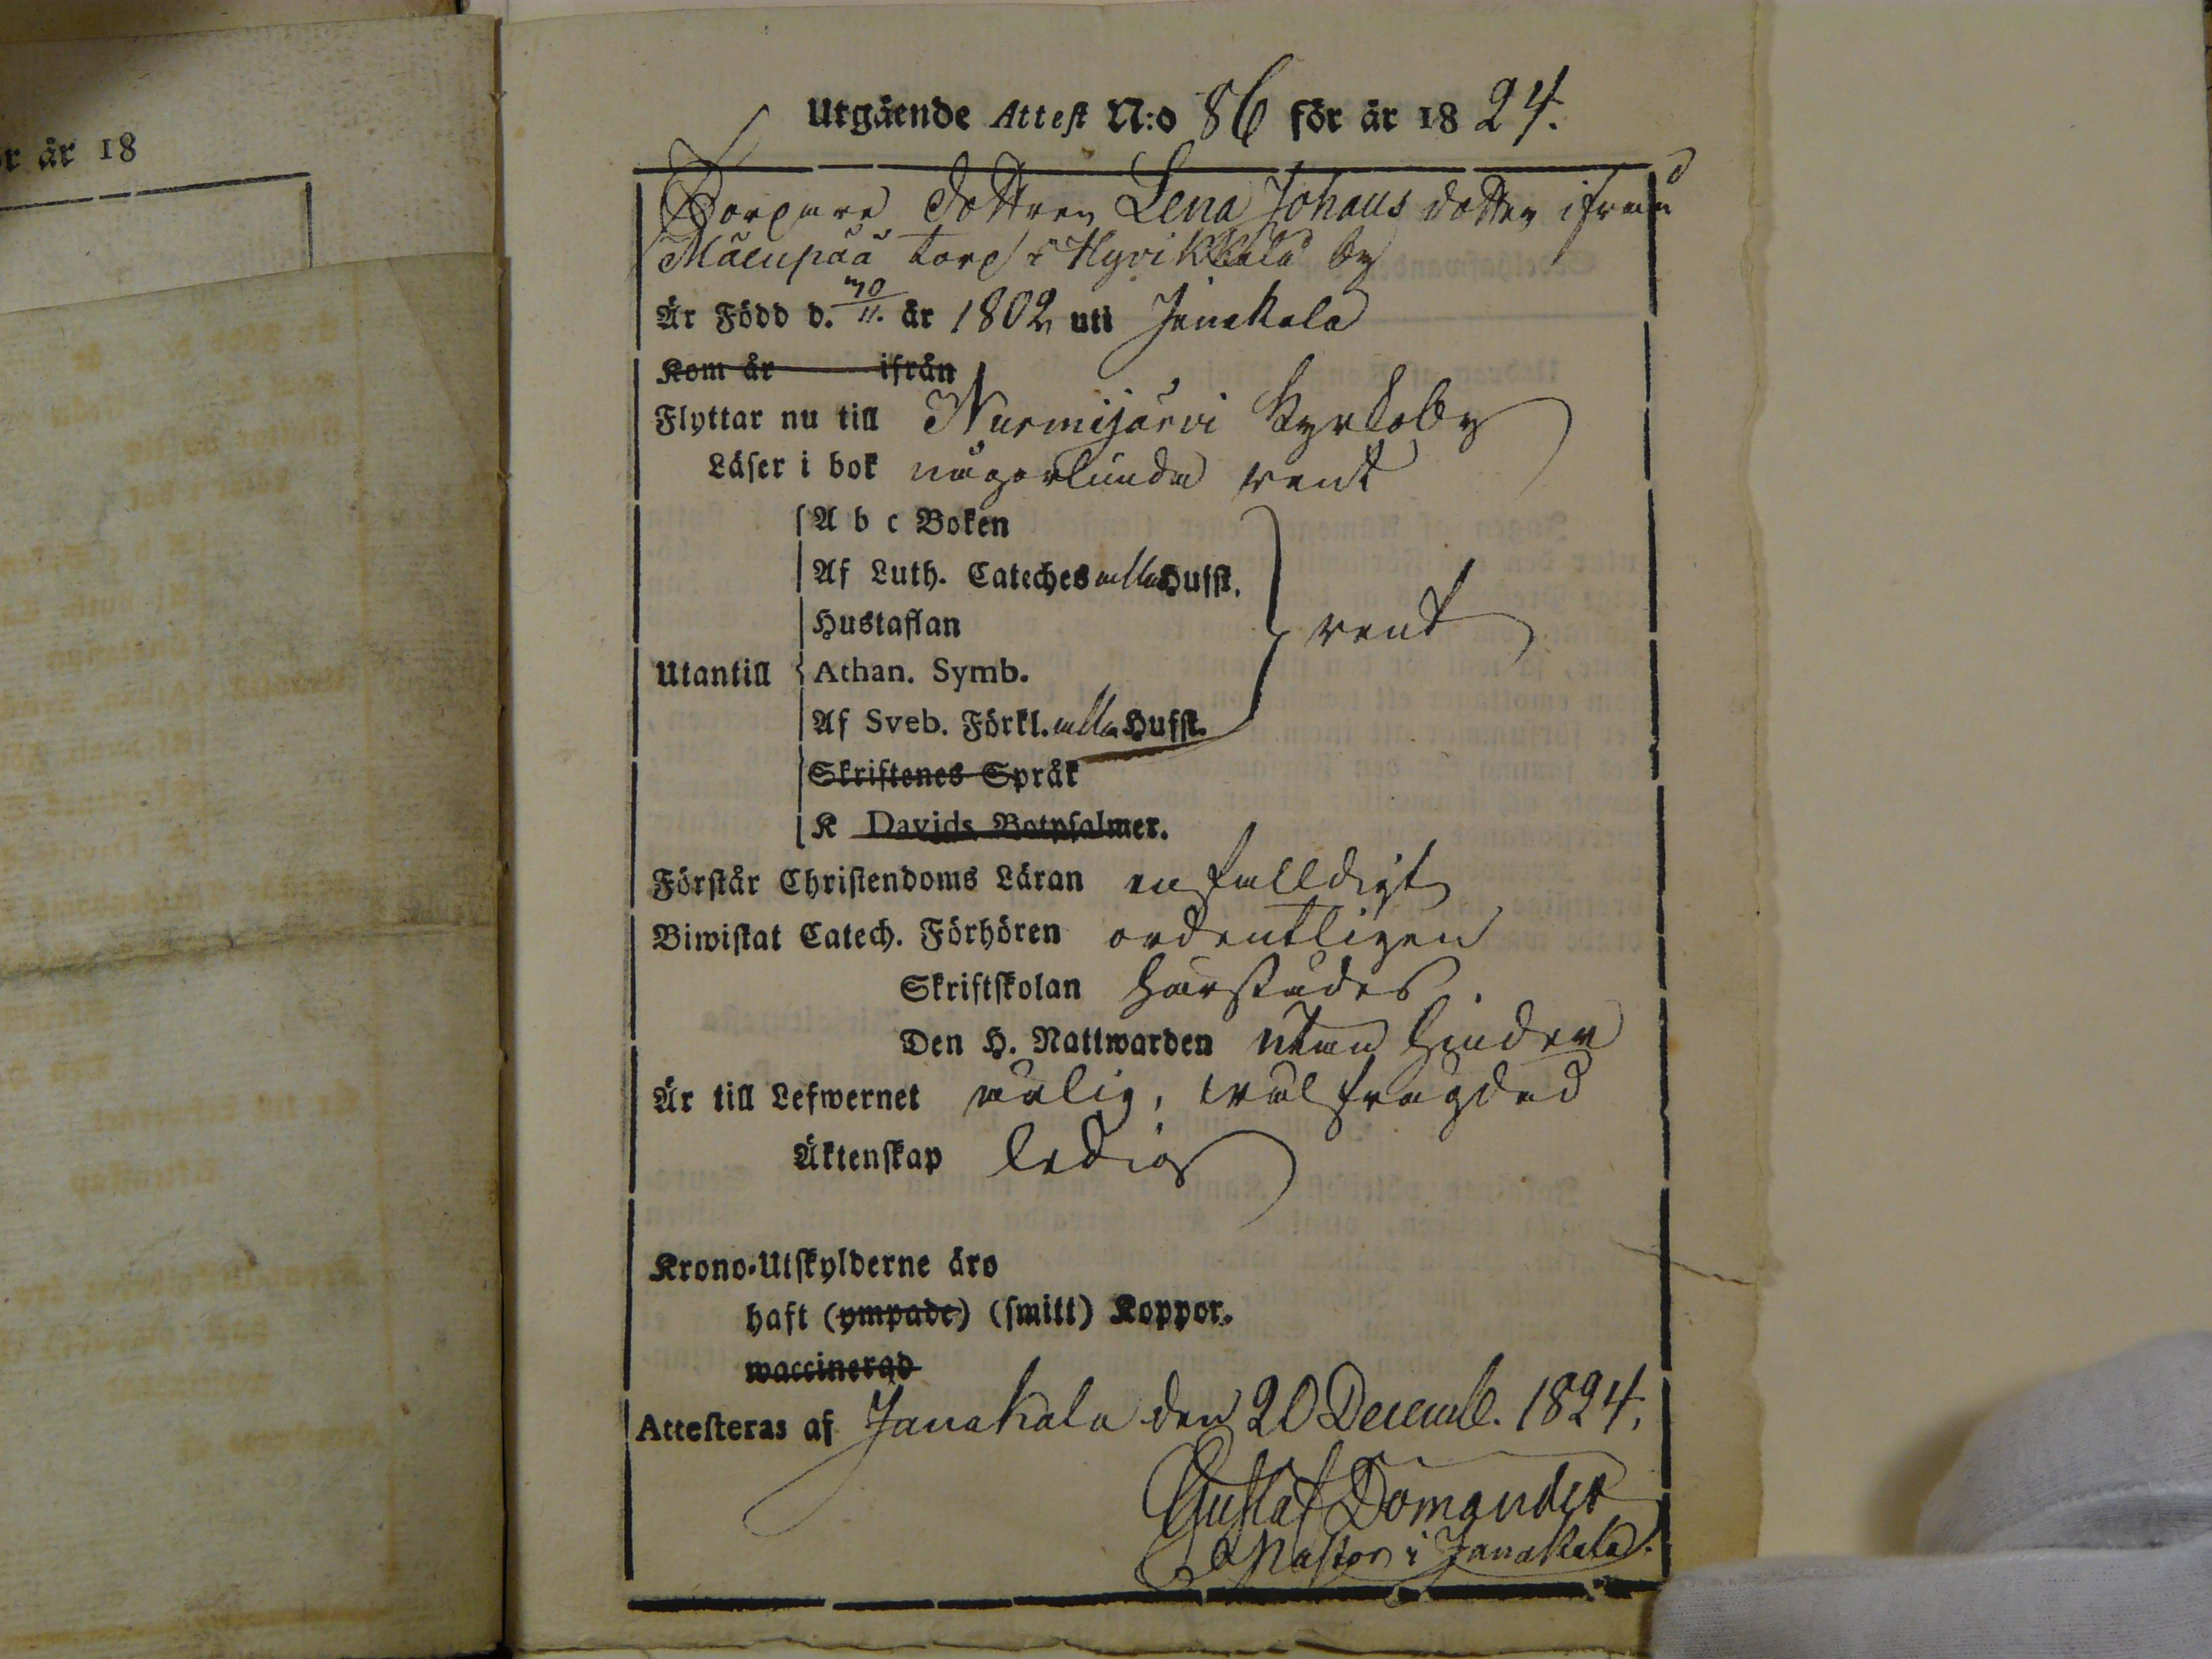 r år 18
Utgående Attest N:o 86 för år 1824.
Torpare dottren Lena Johans dotter ifrån
Mäenpää torp i Hyvikkälä by
Är Född d. 30/11. år 1802 uti Janakala
Kom år ifrån
Flyttar nu till Nurmijärvi Kyrkoby
Läser i bok någorlunda rent
A b c Boken
Af Luth. Cateches alla Hufst.
Hustaflan
rent
Utantill Athan. Symb.
Af Sveb. Förkl. alla Hufst.
Skriftenes Språk
K Davids Botpsalmer.
Förstår Christendoms Läran enfalldigt
Biwistat Catech. Förhören ordentligen
Skriftskolan härstädes.
Den H. Nattwarden utan hinder
Är till Lefwernet ärlig, wälfrägdad
Äktenskap ledig
Krono-Utskylderne äro
haft (ympade) (smitt) Koppor.
waccinerad
Attesteras af Janakala den 20 Decemb. 1824.
Gustaf Domander
Pastor i Janakala.